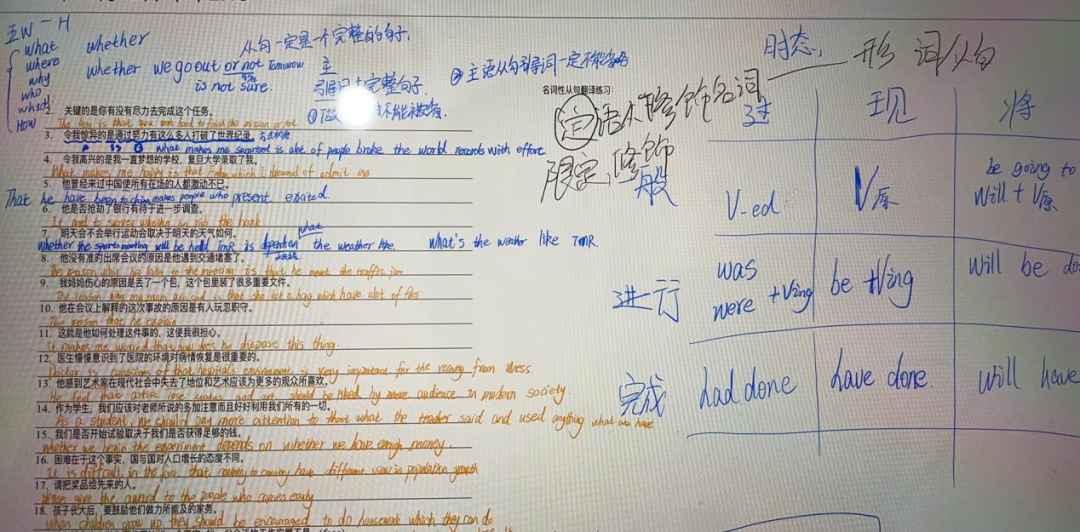 五W一H
what
where
why
who
which
How
whether
whether we go out or not Tomorrow
is not sure.
从句一定是一个完整的句子.
主
引导词+完整句子.
② 主语从句引导词一定不能省略
不能被省.
名词性从句翻译练习：
定语→修饰名词
限定,修饰
时态,
形 词/从句
过 现 将
一般 V-ed V原 be going to
will + V原
进行 was
were +Ving be +Ving will be do
完成 had done have done. will have
2. 关键的是你有没有尽力去完成这个任务。
The key is that you work hard to finish the mission or not
3. 令我惊异的是通过努力有这么多人打破了世界纪录。
what makes me surprised is alot of people broke the world records with effort
4. 令我高兴的是我一直梦想的学校，复旦大学录取了我。
What makes me happy is that Fudan which I dreamed of admit me
5. 他曾经来过中国使所有在场的人都激动不已。
That he have been to china makes people who present exated
6. 他是否抢劫了银行有待于进一步调查。
the bank
7. 明天会不会举行运动会取决于明天的天气如何。
Whether the sports meeting will be held TMR is dependen what the weather like. What's the weather like TMR.
8. 他没有准时出席会议的原因是他遇到交通堵塞了。
The reason why he late to the meeting is that he meet the traffic jam
9. 我妈妈伤心的原因是丢了一个包，这个包里装了很多重要文件。
The reason why my mom is that she lost a bag which have alot of files
10. 他在会议上解释的这次事故的原因是有人玩忽职守。
The reason that he explain
11. 这就是他如何处理这件事的，这使我很担心。
It makes me worried that how does he dispose this thing.
12. 医生慢慢意识到了医院的环境对病情恢复是很重要的。
Doctor is conscious of that hospital's environment is very important for the recovery from illness
13. 他感到艺术家在现代社会中失去了地位和艺术应该为更多的观众所喜欢。
He find that artist lose status and art should be liked by more audience in modern society.
14. 作为学生，我们应该对老师所说的多加注意而且好好利用我们所有的一切。
As a student, we should pay more attention to that what the teacher said and used anything what we have
15. 我们是否开始试验取决于我们是否获得足够的钱。
Whether we begin the experiment depends on whether we have enough money.
16. 困难在于这个事实，国与国对人口增长的态度不同。
It is difficult in the fact that country to country have different view in population growth
17. 请把奖品给先来的人。
please give the award to the people who comes early
18. 孩子长大后，要鼓励他们做力所能及的家务。
when children grow up, they should be encouraged to do housework which they can do